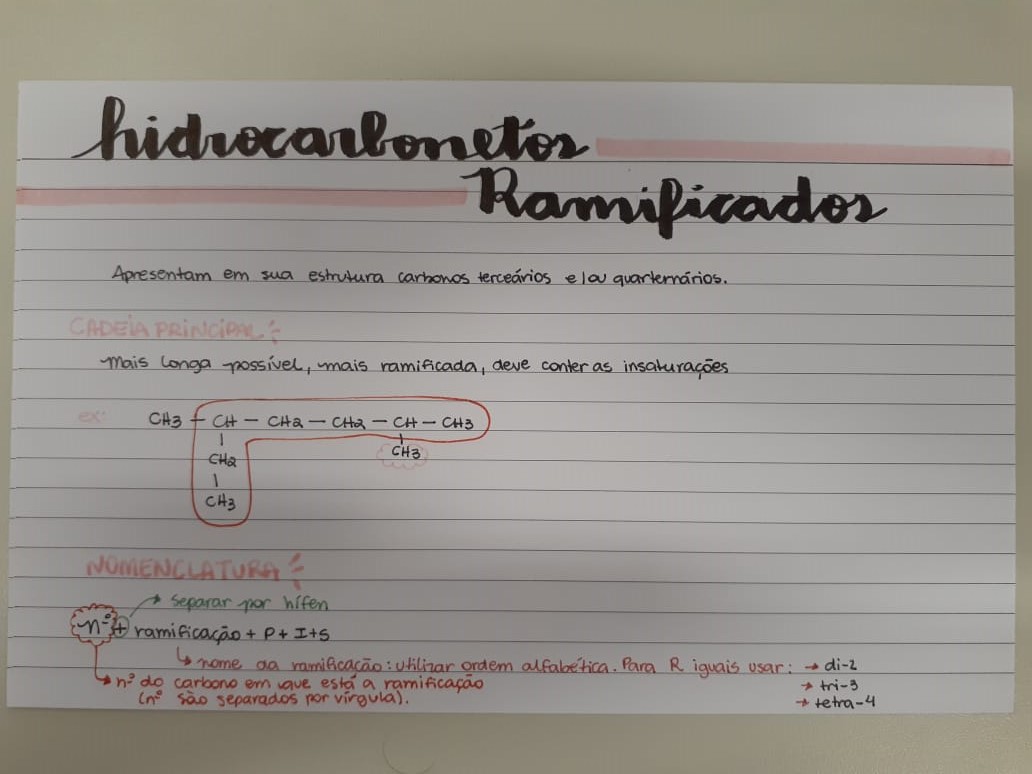 hidrocarbonetos
Ramificados
Apresentam em sua estrutura carbonos terceários e/ou quarternários.
CADEIA PRINCIPAL
Mais longa possível, mais ramificada, deve conter as insaturações
ex: CH3 – CH – CH2 – CH2 – CH – CH3
CH2 CH3
CH3
NOMENCLATURA
separar por hífen
nº + ramificação + P + I + S
nome da ramificação: utilizar ordem alfabética. Para R iguais usar: → di-2
nº do carbono em que está a ramificação → tri-3
(nº são separados por vírgula). → tetra-4